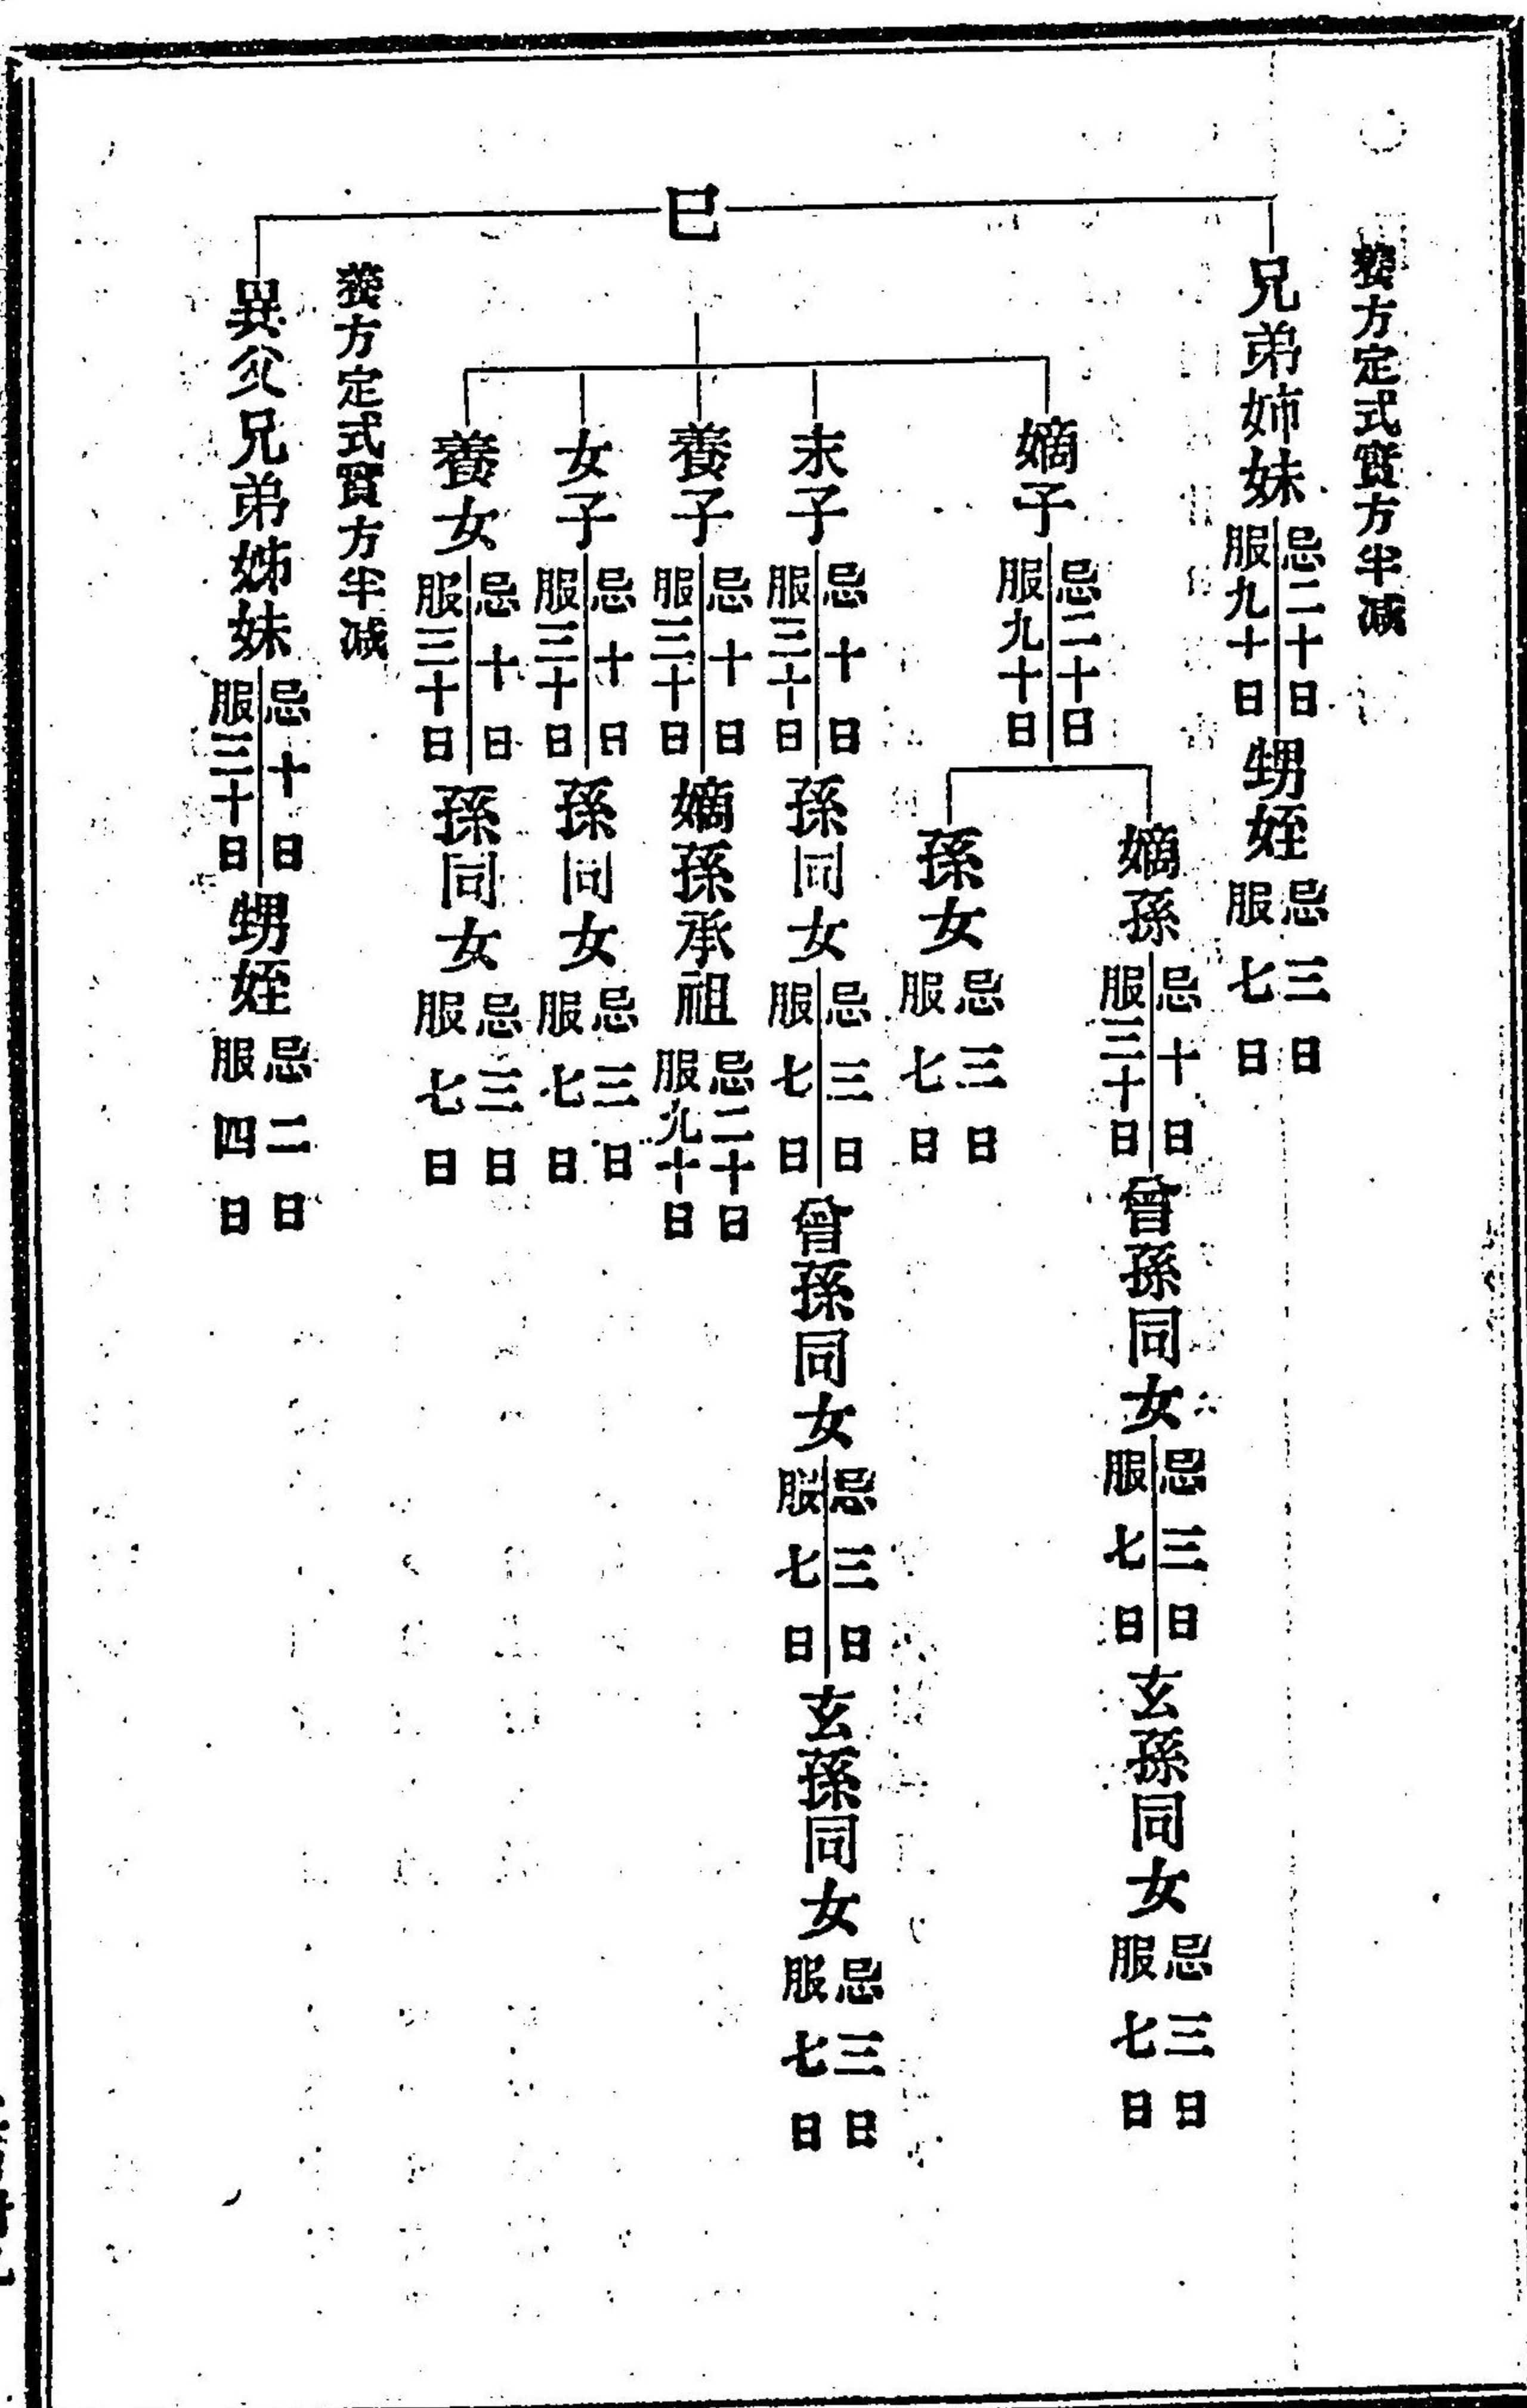 養方定式實方半減
兄弟姉妹
忌二十日
服九十日
甥姪
忌三日
服七日
巳
嫡子
忌二十日
服九十日
嫡孫
忌十日
服三十日
曾孫同女
忌三日
服七日
玄孫同女
忌三日
服七日
孫女
忌三日
服七日
末子
忌十日
服三十日
孫同女
忌三日
服七日
曾孫同女
忌三日
服七日
玄孫同女
忌三日
服七日
養子
忌十日
服三十日
嫡孫承祖
忌二十日
服九十日
女子
忌十日
服三十日
孫同女
忌三日
服七日
養女
忌十日
服三十日
孫同女
忌三日
服七日
養方定式實方半減
異父兄弟姊妹
忌十日
服三十日
甥姪
忌二日
服四日